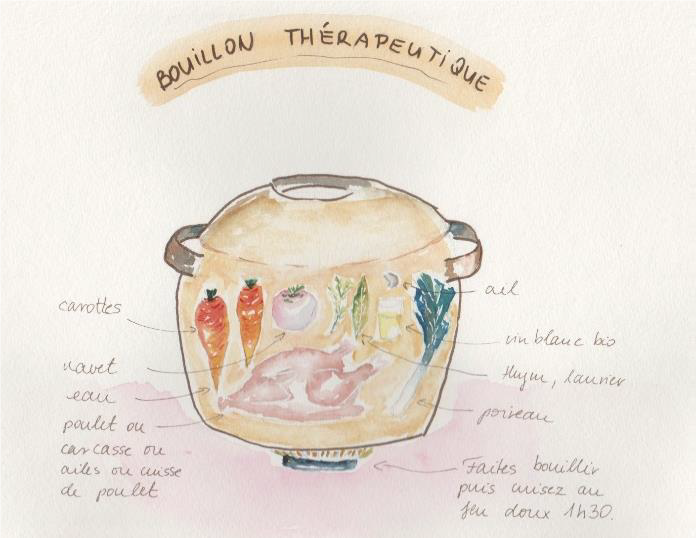 BOUILLON THÉRAPEUTIQUE
carottes
navet
eau
poulet ou
carcasse ou
ailes ou cuisse
de poulet
ail
vin blanc bio
thym, laurier
poireau
Faites bouillir
puis cuisez au
feu doux 1h30.